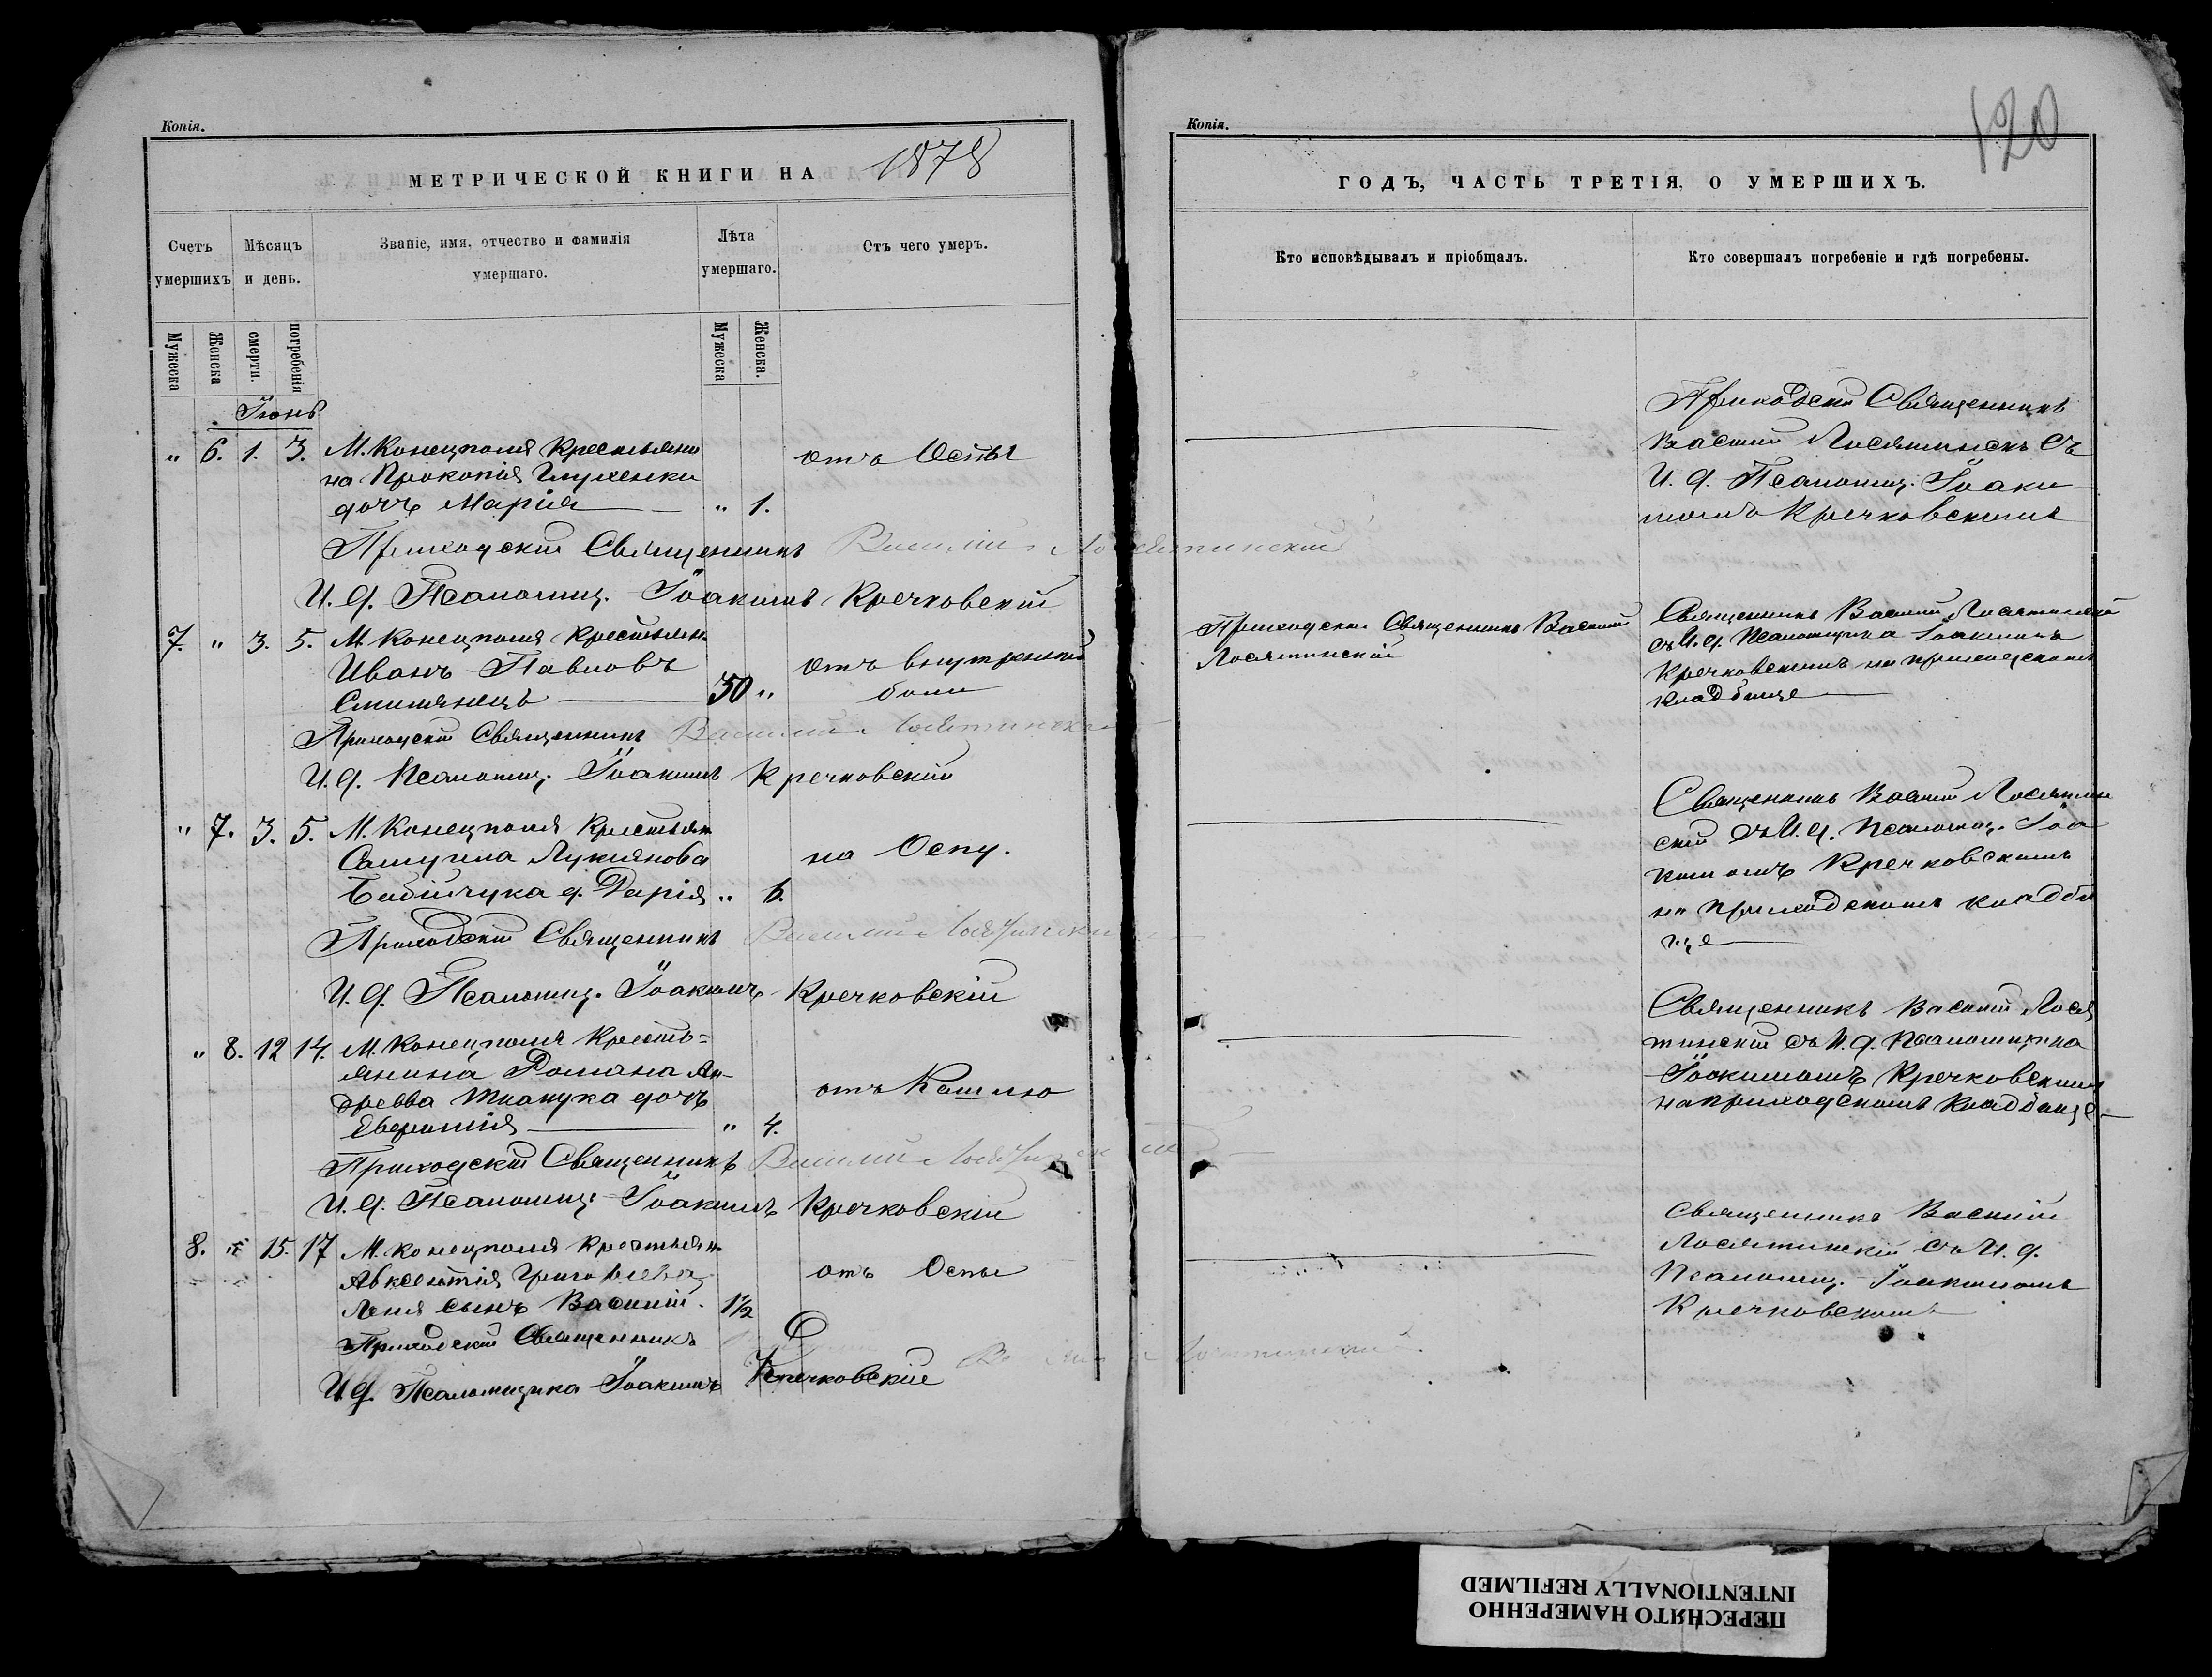 Копія.
МЕТРИЧЕСКОЙ КНИГИ НА 1878
Счетъ умершихъ.
Мѣсяцъ и день.
Званіе, имя, отчество и фамилія умершаго.
Лѣта умершаго.
Отъ чего умеръ.
Мужеска
Женска
смерти.
погребенія
Мужеска
Женска.
Іюнь
" 6. 1. 3. М. Конецполя Крестьяни
на Прокопія Глущенки
дочь Марія " 1.
отъ Оспы
Приходскій Священникъ Василій Лосятинскій
И. д. Псаломщ. Іоакимъ Кречковскій
7. " 3. 5. М. Конецполя Крестьян.
Иванъ Павловъ
Смилянецъ 30 "
отъ внутренной
боли
Приходскій Священникъ Василій Лосятинскій
И. д. Псаломщ. Іоакимъ Кречковскій
" 7. 3. 5. М. Конецполя Крестьян
Самуила Лукіянова
Бабійчука д. Дарія " 6.
на Оспу.
Приходскій Священникъ Василій Лосятинскій
И. д. Псаломщ. Іоакимъ Кречковскій
" 8. 12 14. М. Конецполя Кресть=
янина Романа Ан-
дреева дочь
" 4.
отъ Кашлю
Приходскій Священникъ Василій Лосятинскій
И. д. Псаломщ. Іоакимъ Кречковскій
8. " 15. 17 М. Конецполя Крестьян.
Авксентія Григорьева
сынъ Василій. 1 1/2
отъ Оспы
Приходскій Священникъ Василій Лосятинскій
И. д. Псаломщика Іоакимъ Кречковскій
Копія.
120
ГОДЪ, ЧАСТЬ ТРЕТІЯ, О УМЕРШИХЪ.
Кто исповѣдывалъ и пріобщалъ.
Кто совершалъ погребеніе и гдѣ погребены.
Приходскій Священникъ
Василій Лосятинскъ съ
И. д. Псаломщ. Іоаки-
момъ Кречковскимъ
Приходскій Священникъ Василій
Лосятинскій
Священникъ Василій Лосятинскій
съ И. д. Псаломщика Іоакимомъ
Кречковскимъ на приходскомъ
кладбище
Священникъ Василій Лосятин
скій съ И. д. Псаломщ. Іоа
кимомъ Кречковскимъ
на приходскомъ кладби
ще
Священникъ Василій Лося
тинскій съ И. д. Псаломщика
Іоакимомъ Кречковскимъ
на приходскомъ кладбище
Священникъ Василій
Лосятинскій съ И. д.
Псаломщ. Іоакимомъ
Кречковскимъ
ПЕРЕСНЯТО НАМЕРЕННО
INTENTIONALLY REFILMED